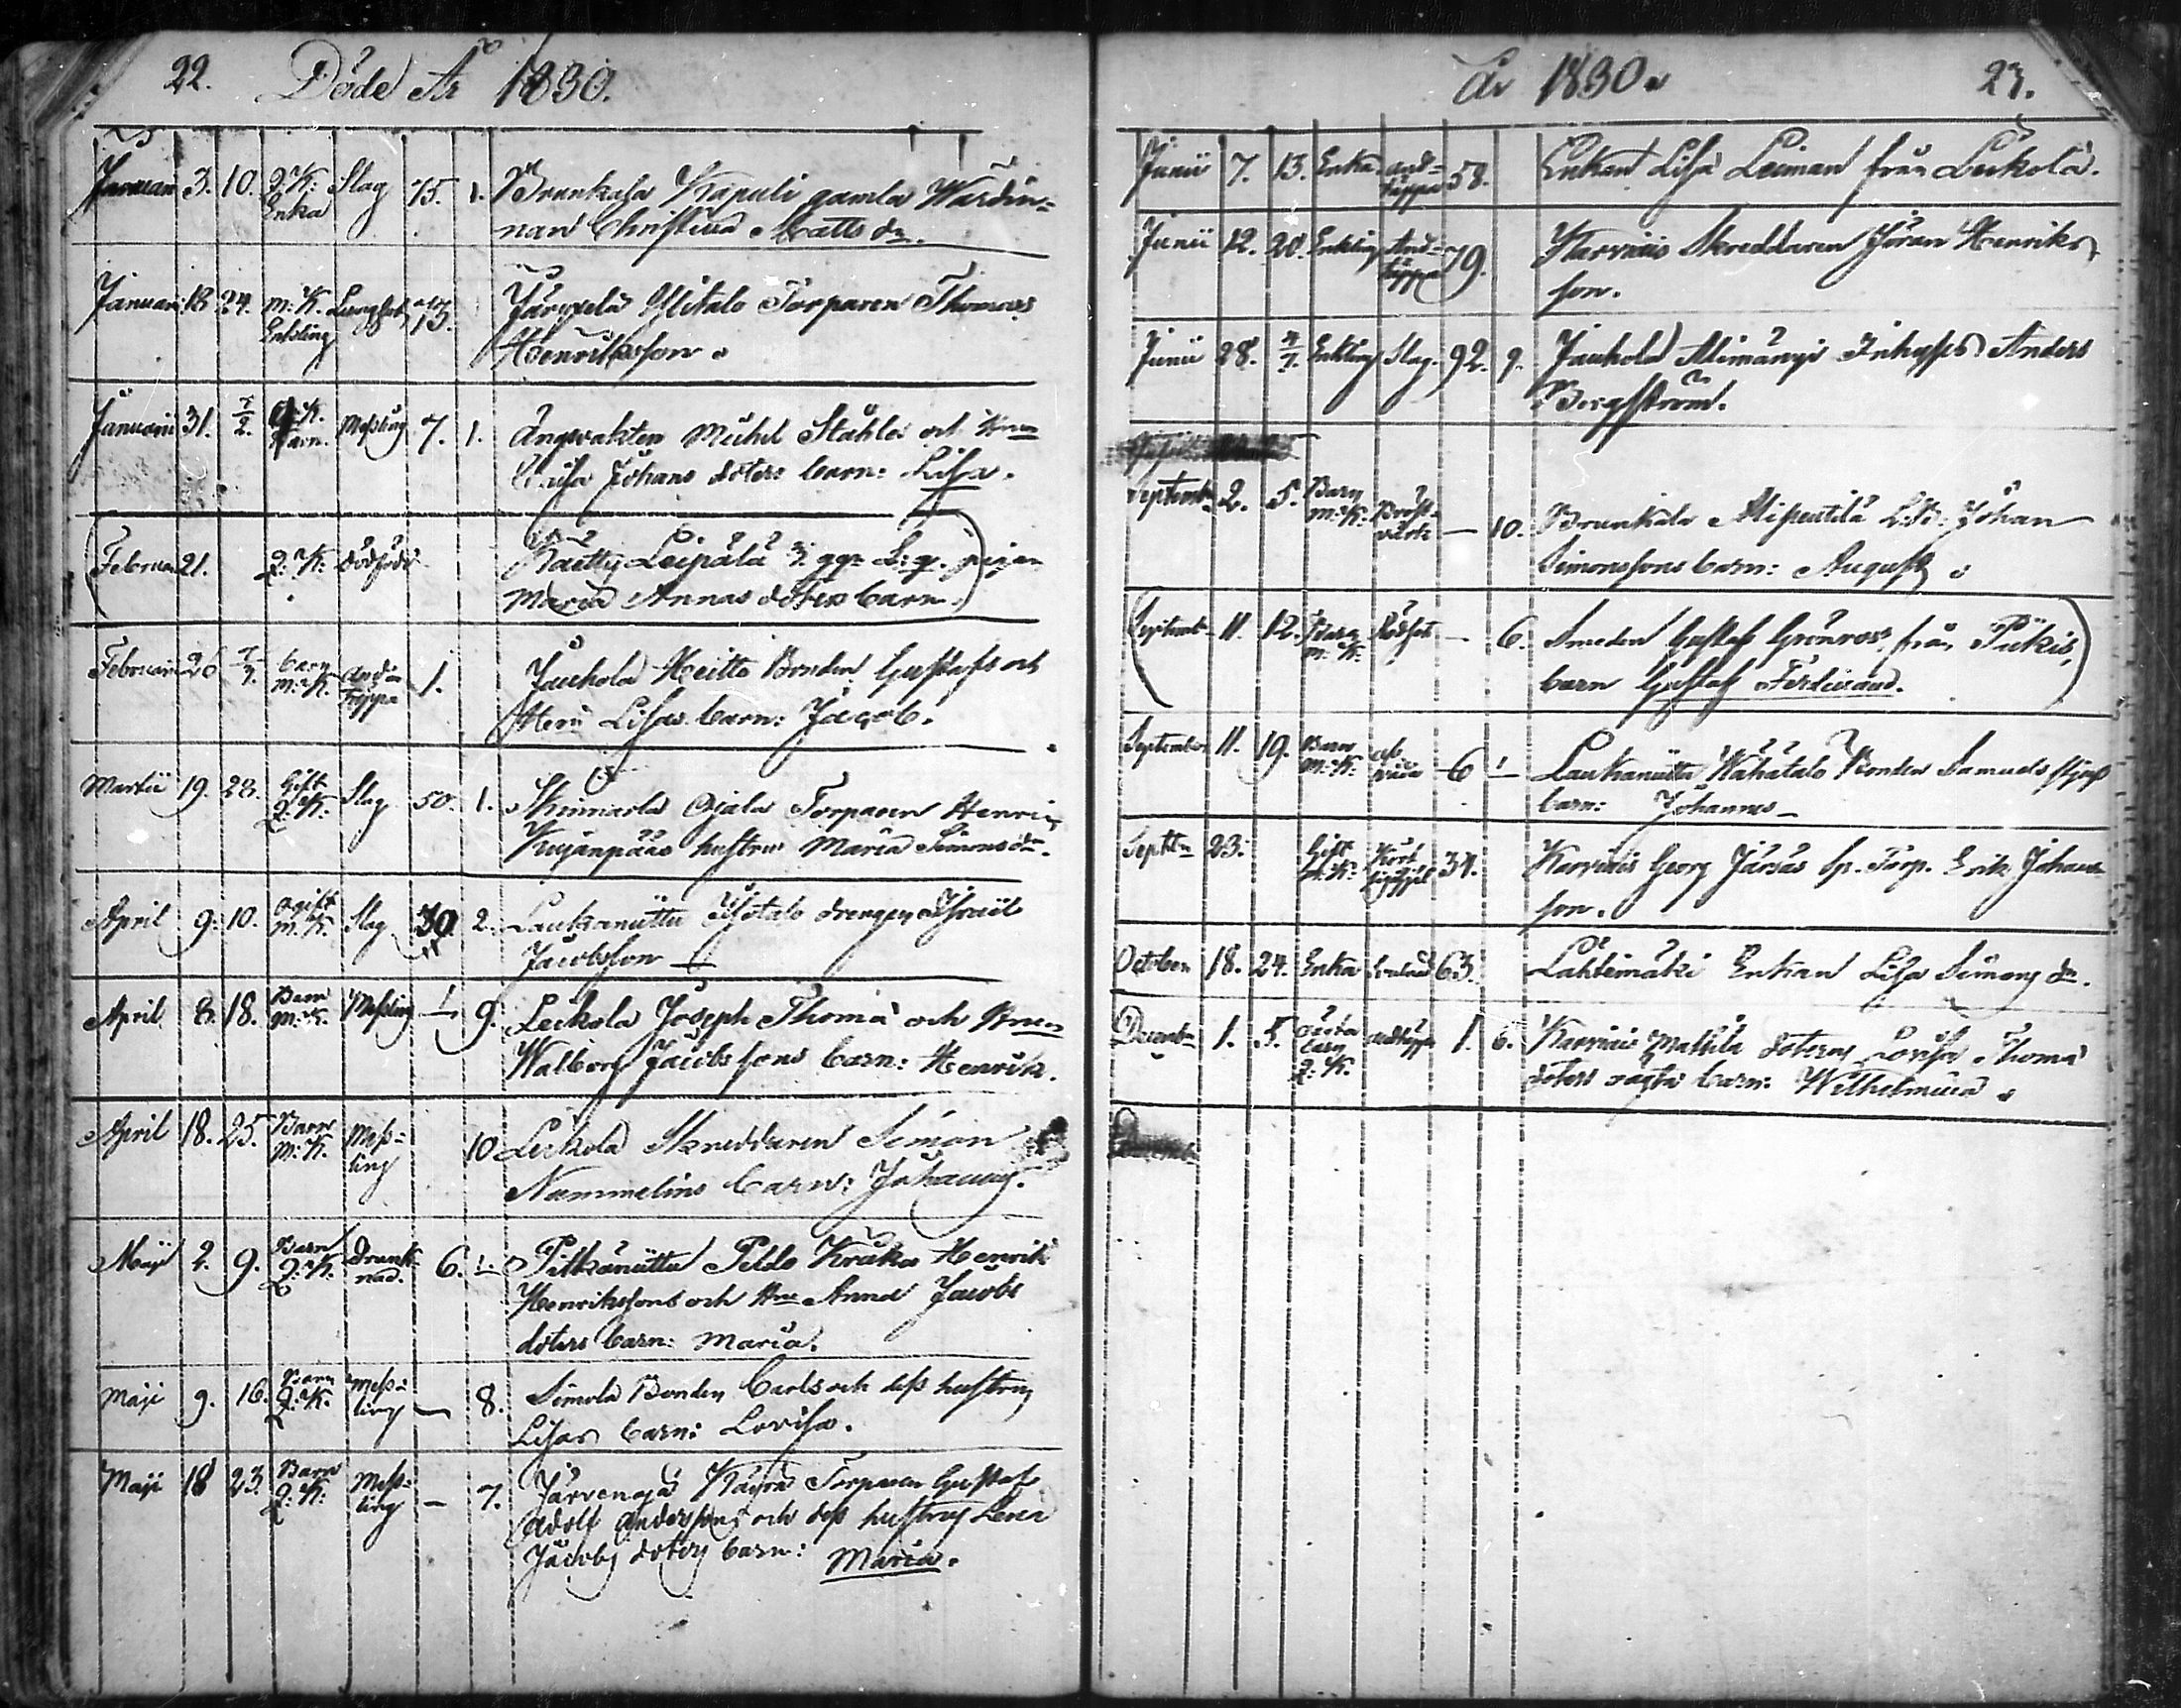 22. Döde År 1830.
Januari 3. 10. Q: K: Enka Slag 75. 1. Brunkala Kapuli gamla Wärdin=
nan Christina Matts dr.
Januari 18 24. M: K. Enkling Lungsot 73. Ylitalo Torparen Thomas
Henriksson.
Januari 31. 7/2. Q: K. Barn. Messling 7. 1. Ängwakten Michel Ståhle och
Johans doters barn: Lisa.
(Februari 21. Q: K: dödfödd Leipälä 3. ggr L: q. pigan
Maria Annas doters barn.)
Februari 26 7/3. barn M: K. and= täppa 1. Jauhola Heitto Bonden Gustafs och
Lisas barn: Jacob.
Martii 19. 28. Gift Q: K: Slag 50. 1. Skinnarla Ojala Torparen Henric
Kujanpääs hustru Maria Simons dr.
April 9. 10. ogift M. K. Slag 30 2. Laukanüttu Isotalo drengen Israël
Jacobsson
April 8. 18. Barn M: K. Messling — 9. Leikola Joseph Thomä och
Walborg Jacobs sons barn: Henrik.
April 18. 25. Barn M: K. Mess= ling 10 Leikola Skreddaren Simon
Nummelins barn: Johannes.
Maji 2. 9. Barn Q: K. Drunk= nad. 6. 1. Pitkänüttu Peldo Kråka Henrik
Henrikssons och Anna Jacobs
doters barn: Maria.
Maji 9. 16. Barn Q: K. Mess= ling — 8. Simola Bonden Carls och dess hustru
Lisas barn: Lovisa.
Maji 18 23. Barn Q: K: Mess= ling — 7. Järvenpä Käyrä Torparen Gustaf
Adolf Anderssons och dess hustru Lena
Jacobs doters barn: Maria.
År 1830. 23.
Junii 7. 13. Enka and= täppa 58. Enkan Lisa Leiman från Leikola.
Junii 12. 20. Enkling And= täppa 79. Karviais Skreddaren Jöran Henriks
son.
Junii 28. 4/7. Enkling Slag. 92. 9. Jauhola Alimänyi Inhyses Anders
Bergström.
Septemb. 2. 5. Barn M: K: Bröst= värk — 10. Brunkala Alipentilä Johan
Simonssons barn: August.
(Septemb. 11. 12. Barn M: K: Rödsot — 6. Smeden Gustaf Grönroos från Piikis,
barn Gustaf Ferdinand.)
September 11. 19. Barn M: K: 6 1 Laukanüttu Wähätalo Bonden Samuels
barn: Johannes —
Septbr 23. Gift M: K: Kört 34. Karviais Georg Järsäs Torp. Erik Johans
son.
October 18. 24. Enka 63. Lähteimäki Enkan Lisa Simons dr.
Decembr 1. 5. oäkta barn Q: K. andtäppa 1. 6. Karviais Mattila doterns Lovisa Thomä
doters oägta barn: Wilhelmina.